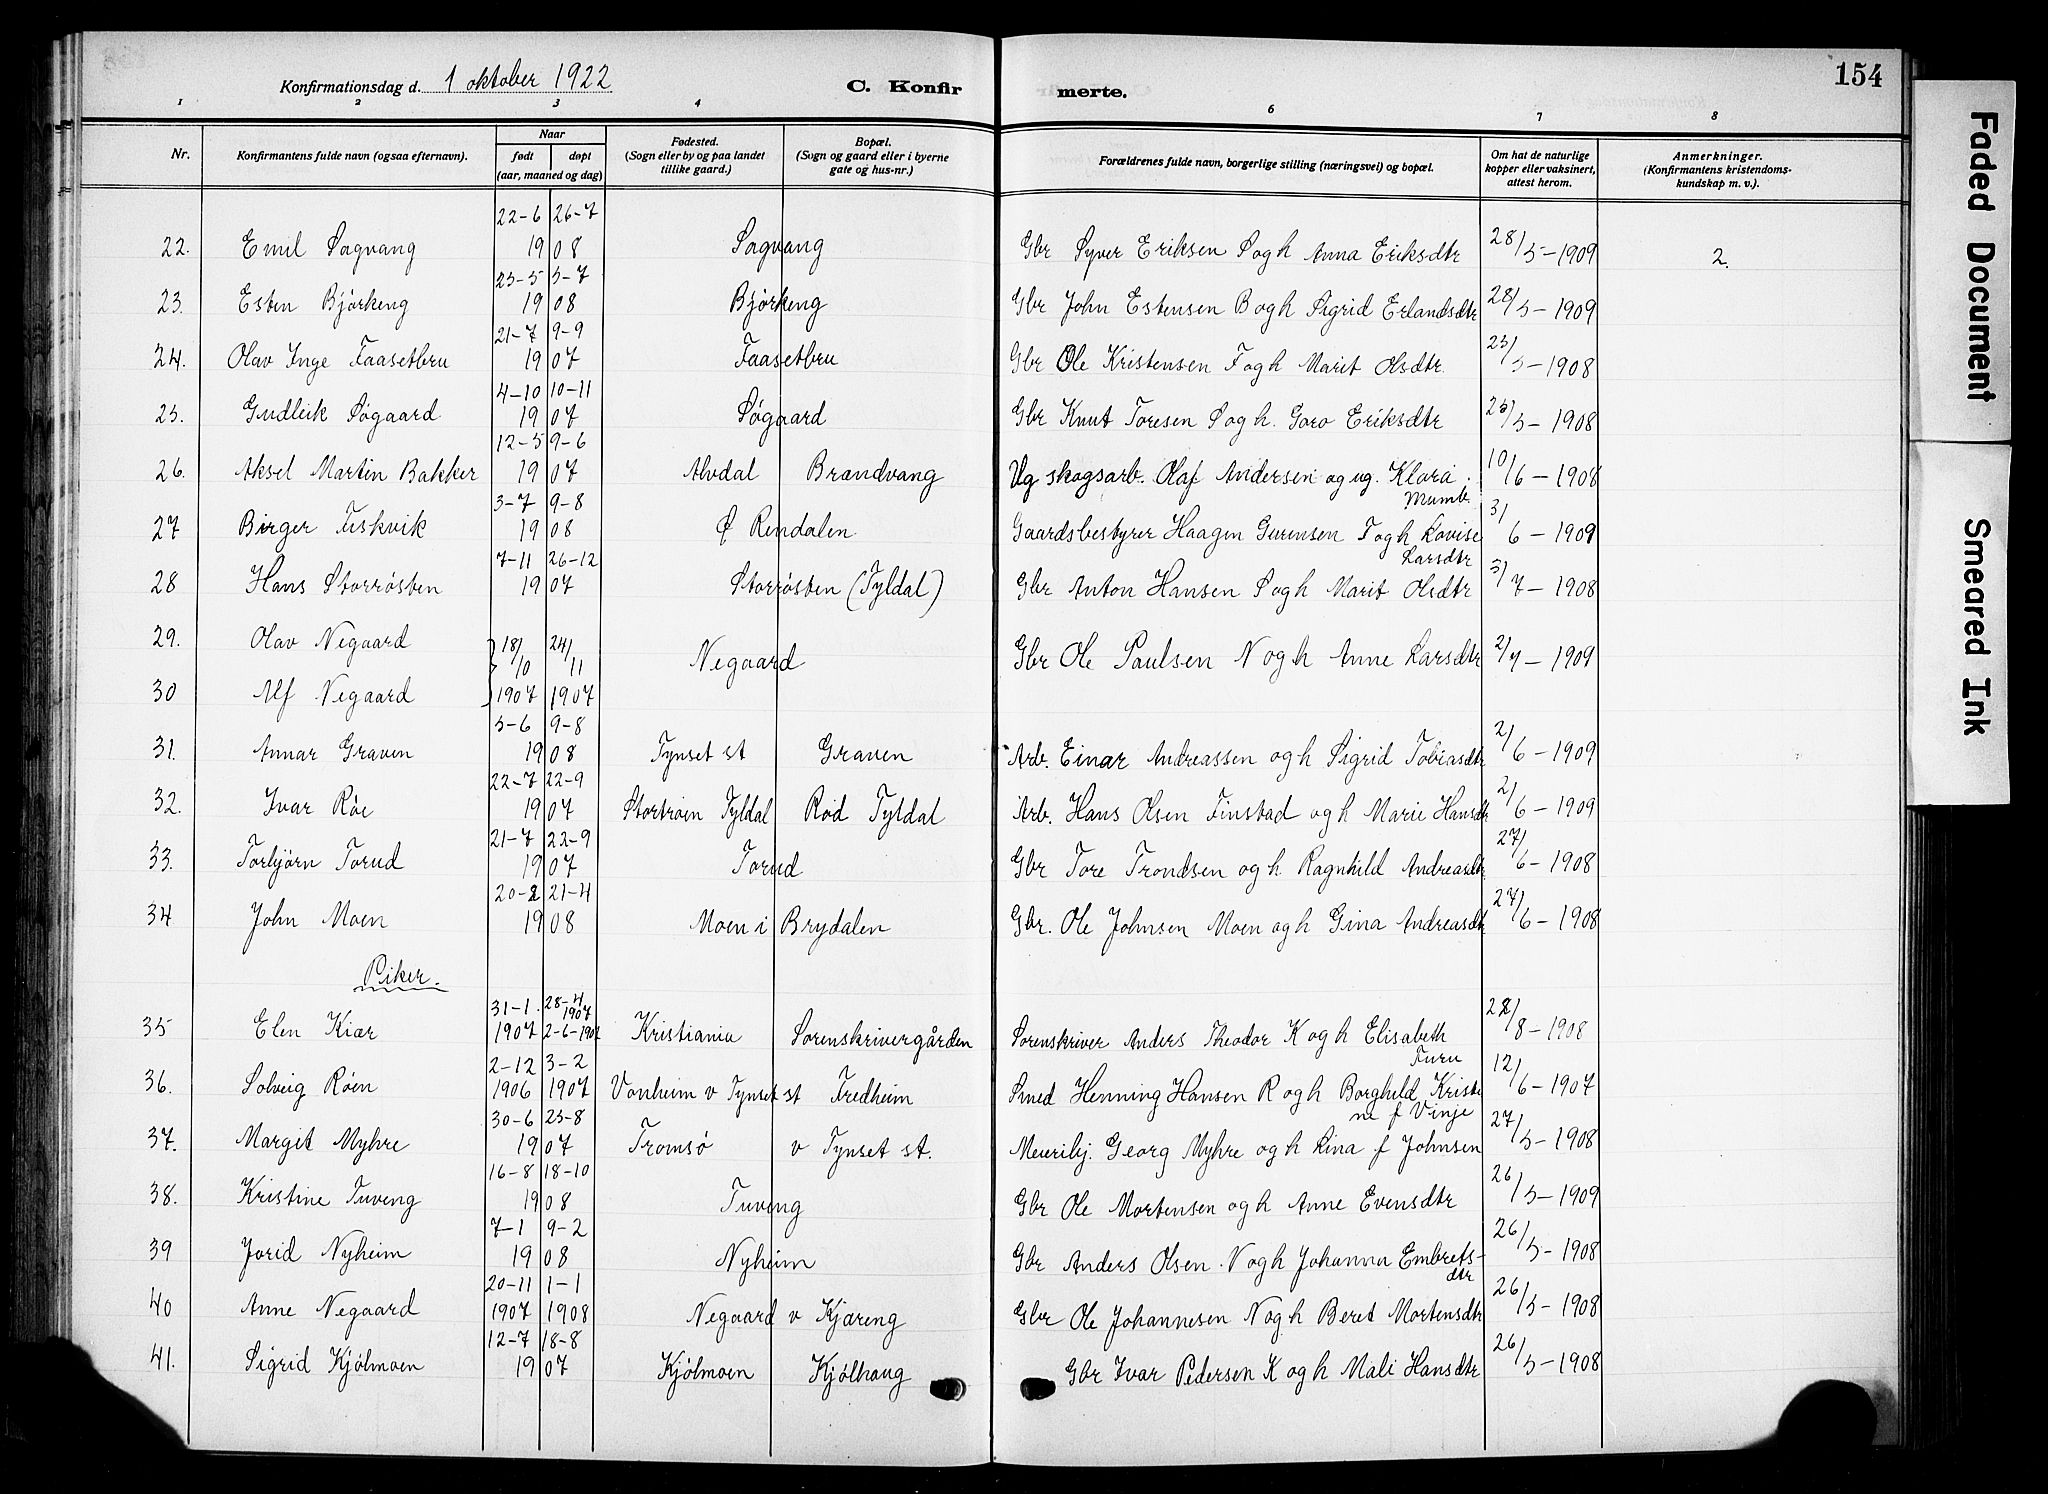 154
Konfirmationsdag d. 1 oktober 1922 C. Konfir merte.
1 2 3 4 5 6 7 8
Nr. Konfirmantens fulde navn (ogsaa efternavn). Naar født døpt (aar, maaned og dag) Fødested. (Sogn eller by og paa landet tillike gaard.) Bopæl. (Sogn og gaard eller i byerne gate og hus-nr.) Forældrenes fulde navn, borgerlige stilling (næringsvei) og bopæl. Om hat de naturlige kopper eller vaksinert, attest herom. Anmerkninger. (Konfirmantens kristendomskundskap m. v.).
22. Emil Sagvang 22-6 26-7 1908 Sagvang Gbr Syver Eriksen S og h Anna Eriksdtr 28/5-1909 2.
23. Esten Bjørkeng 25-5 5-7 1908 Bjørkeng Gbr John Estensen B og h Sigrid Erlandsdtr 28/5-1909
24. Olav Inge Faasetbru 21-7 9-9 1907 Faasetbru Gbr Ole Kristensen F og h Marit Olsdtr. 25/5-1908
25. Gudleik Søgaard 4-10 10-11 1907 Søgaard Gbr Knut Toresen S og h. Goro Eriksdtr 25/5-1908
26. Aksel Martin Bakker 12-5 9-6 1907 Alvdal Brandvang Ug skogsarb. Olaf Andersen og ug. Klara 10/6-1908
27 Birger Fiskvik 3-7 9-8 1908 Ø Rendalen Gaardsbestyrer Haagen Gurensen F og h Lovise Larsdtr 3/6-1909
28 Hans Storrøsten 7-11 26-12 1907 Storrøsten (Tyldal) Gbr Anton Hansen S og h Marit Olsdtr 3/7-1908
29. Olav Negaard 18/10 24/11 Negaard Gbr Ole Paulsen N og h Anne Larsdtr 2/7-1909
30 Alf Negaard 1907 1907
31. Annar Graven 5-6 9-8 1908 Tynset st Graven Arb. Einar Andreassen og h Sigrid Tobiasdtr 2/6-1909
32. Ivar Røe 22-7 22-9 1907 Stortrøen Tyldal Rød Tyldal Arb. Hans Olsen Finstad og h Marie Hansdtr 2/6-1909
33. Torbjørn Torud 21-7 22-9 1907 Torud Gbr Tore Trondsen og h Ragnhild Andreasdtr 27/6-1908
34 John Moen 20-2 21-4 1908 Moen i Brydalen Gbr. Ole Johnsen Moen og h Gina Andreasdtr 27/6-1908
Piker.
35 Elen Kiær 31-1. 1907 28-4 1907 2-6-1907 Kristiania Sorenskrivergården Sorenskriver Anders Theodor K og h Elisabeth Furu 22/8-1908
36. Solveig Røen 2-12 1906 3-2 1907 Vonheim v Tynset st Fredheim Smed Henning Hansen R og h Borghild Kristine f Vinje 12/6-1907
37. Margit Myhre 30-6 25-8 1907 Tromsø v Tynset st. Meieribj. Georg Myhre og h Lina f Johnsen 27/5-1908
38. Kristine Tuveng 16-8 18-10 1908 Tuveng Gbr Ole Mortensen og h Anne Evensdtr 26/5-1909
39 Jorid Nyheim 7-1 9-2 1908 Nyheim Gbr Anders Olsen N og h Johanna Embretsdtr 26/5-1908
40 Anne Negaard 20-11 1907 1-1 1908 Negaard v Kjæreng Gbr Ole Johannesen N og h Beret Mortensdtr 26/5-1908
41. Sigrid Kjølmoen 12-7 18-8 1907 Kjølmoen Kjølhaug Gbr Ivar Pedersen K og h Mali Hansdtr 26/5-1908
Faded Document
Smeared Ink